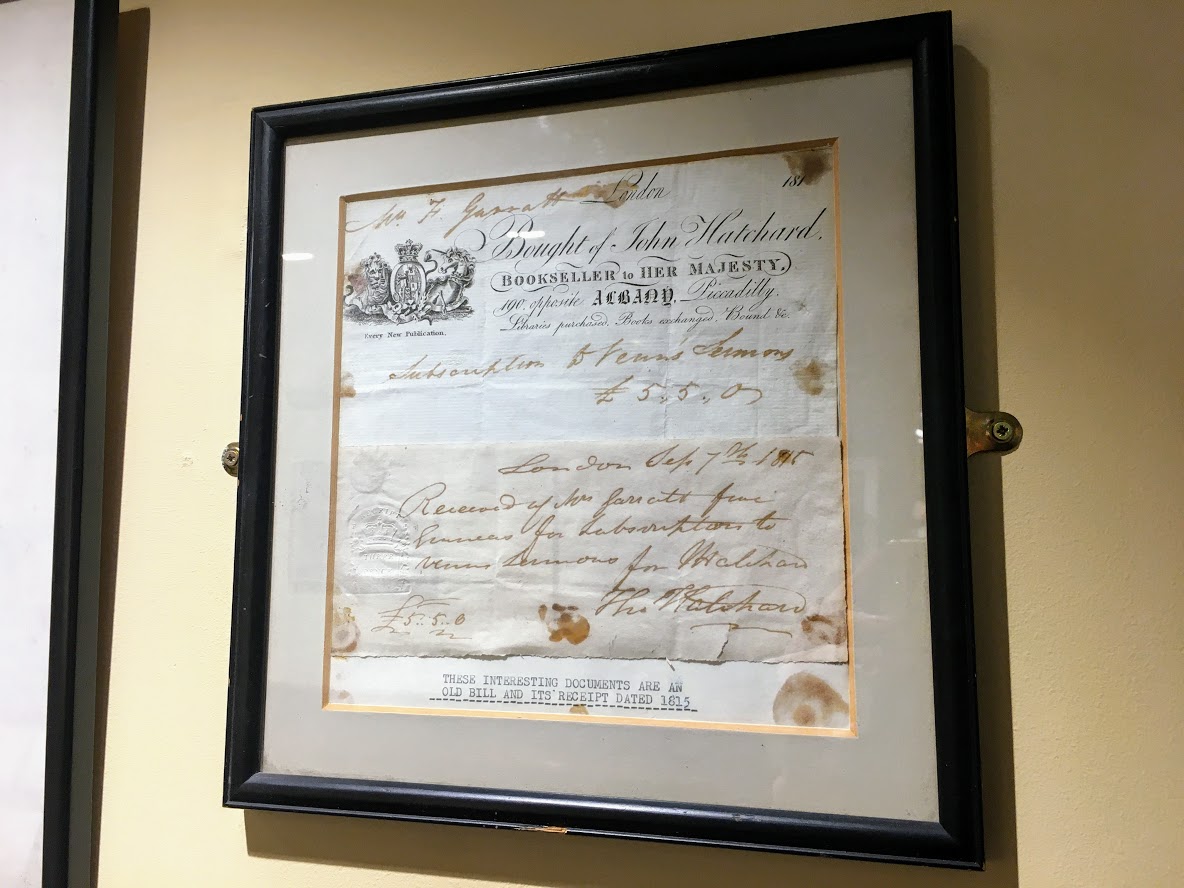 Mr. F. Garratt
London 181
Bought of John Hatchard,
BOOKSELLER to HER MAJESTY,
190, opposite ALBANY, Piccadilly.
Libraries purchased, Books exchanged, Bound &c.
Every New Publication.
Subscription to Venns Sermons
£ 5,, 5,, 0
London Sep 7th 1815
Received of Mrs Garratt five
Guineas for subscriptions to
Venns Sermons for Hatchard
Tho Hatchard
£5.. 5.. 0
THESE INTERESTING DOCUMENTS ARE AN
OLD BILL AND ITS RECEIPT DATED 1815